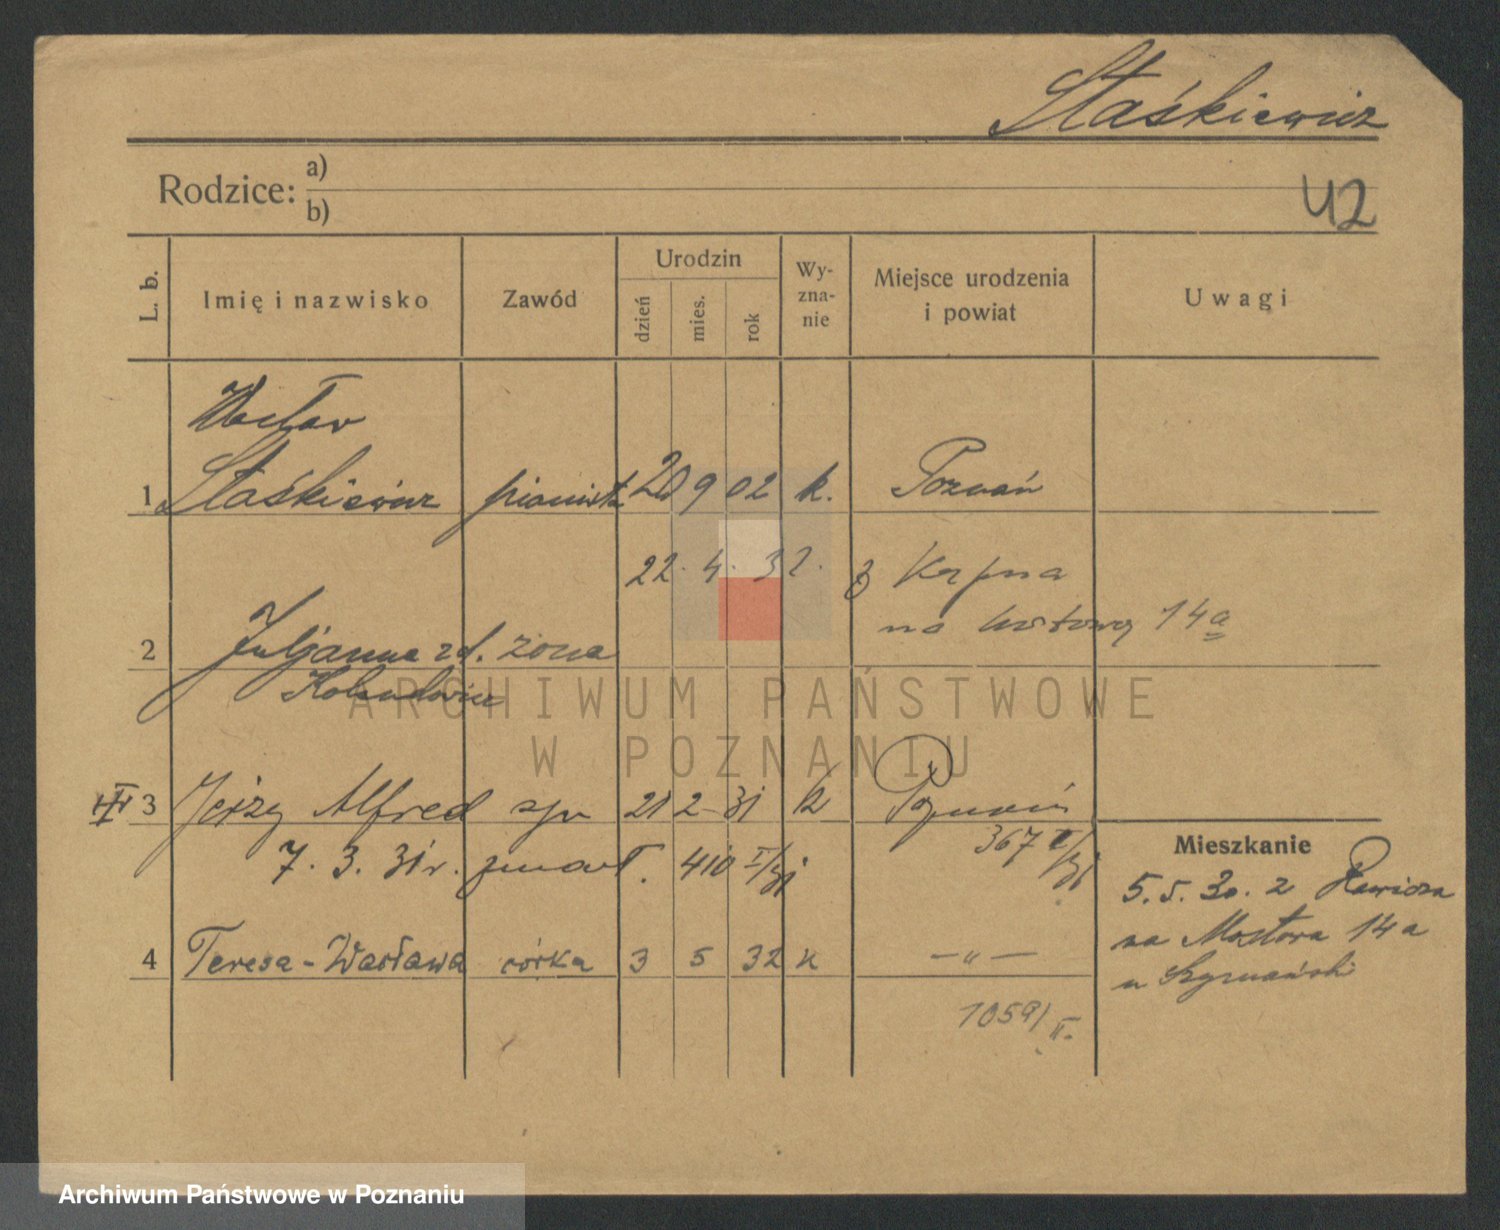 Staśkiewicz
Rodzice: a)
b)
42
L. b.
Imię i nazwisko
Zawód
Urodzin
dzień
mies.
rok
Wy-
zna-
nie
Miejsce urodzenia
i powiat
Uwagi
Wacław
1 Staśkiewicz pianista 20 9 02 k. Poznań
22. 4. 32. z
na 14a
2 Juljanna zd. żona
ARCHIWUM PAŃSTWOWE
W POZNANIU
3 Jerzy Alfred syn 21 2 31 k Poznań
367 II/31
7. 3. 31 r. zmarł. 410 I/31
Mieszkanie
5. 5. 30. z Rawicza
na Mostowa 14a
u Szymański
4 Teresa-Wacława córka 3 5 32 k —„—
1059/II.
Archiwum Państwowe w Poznaniu